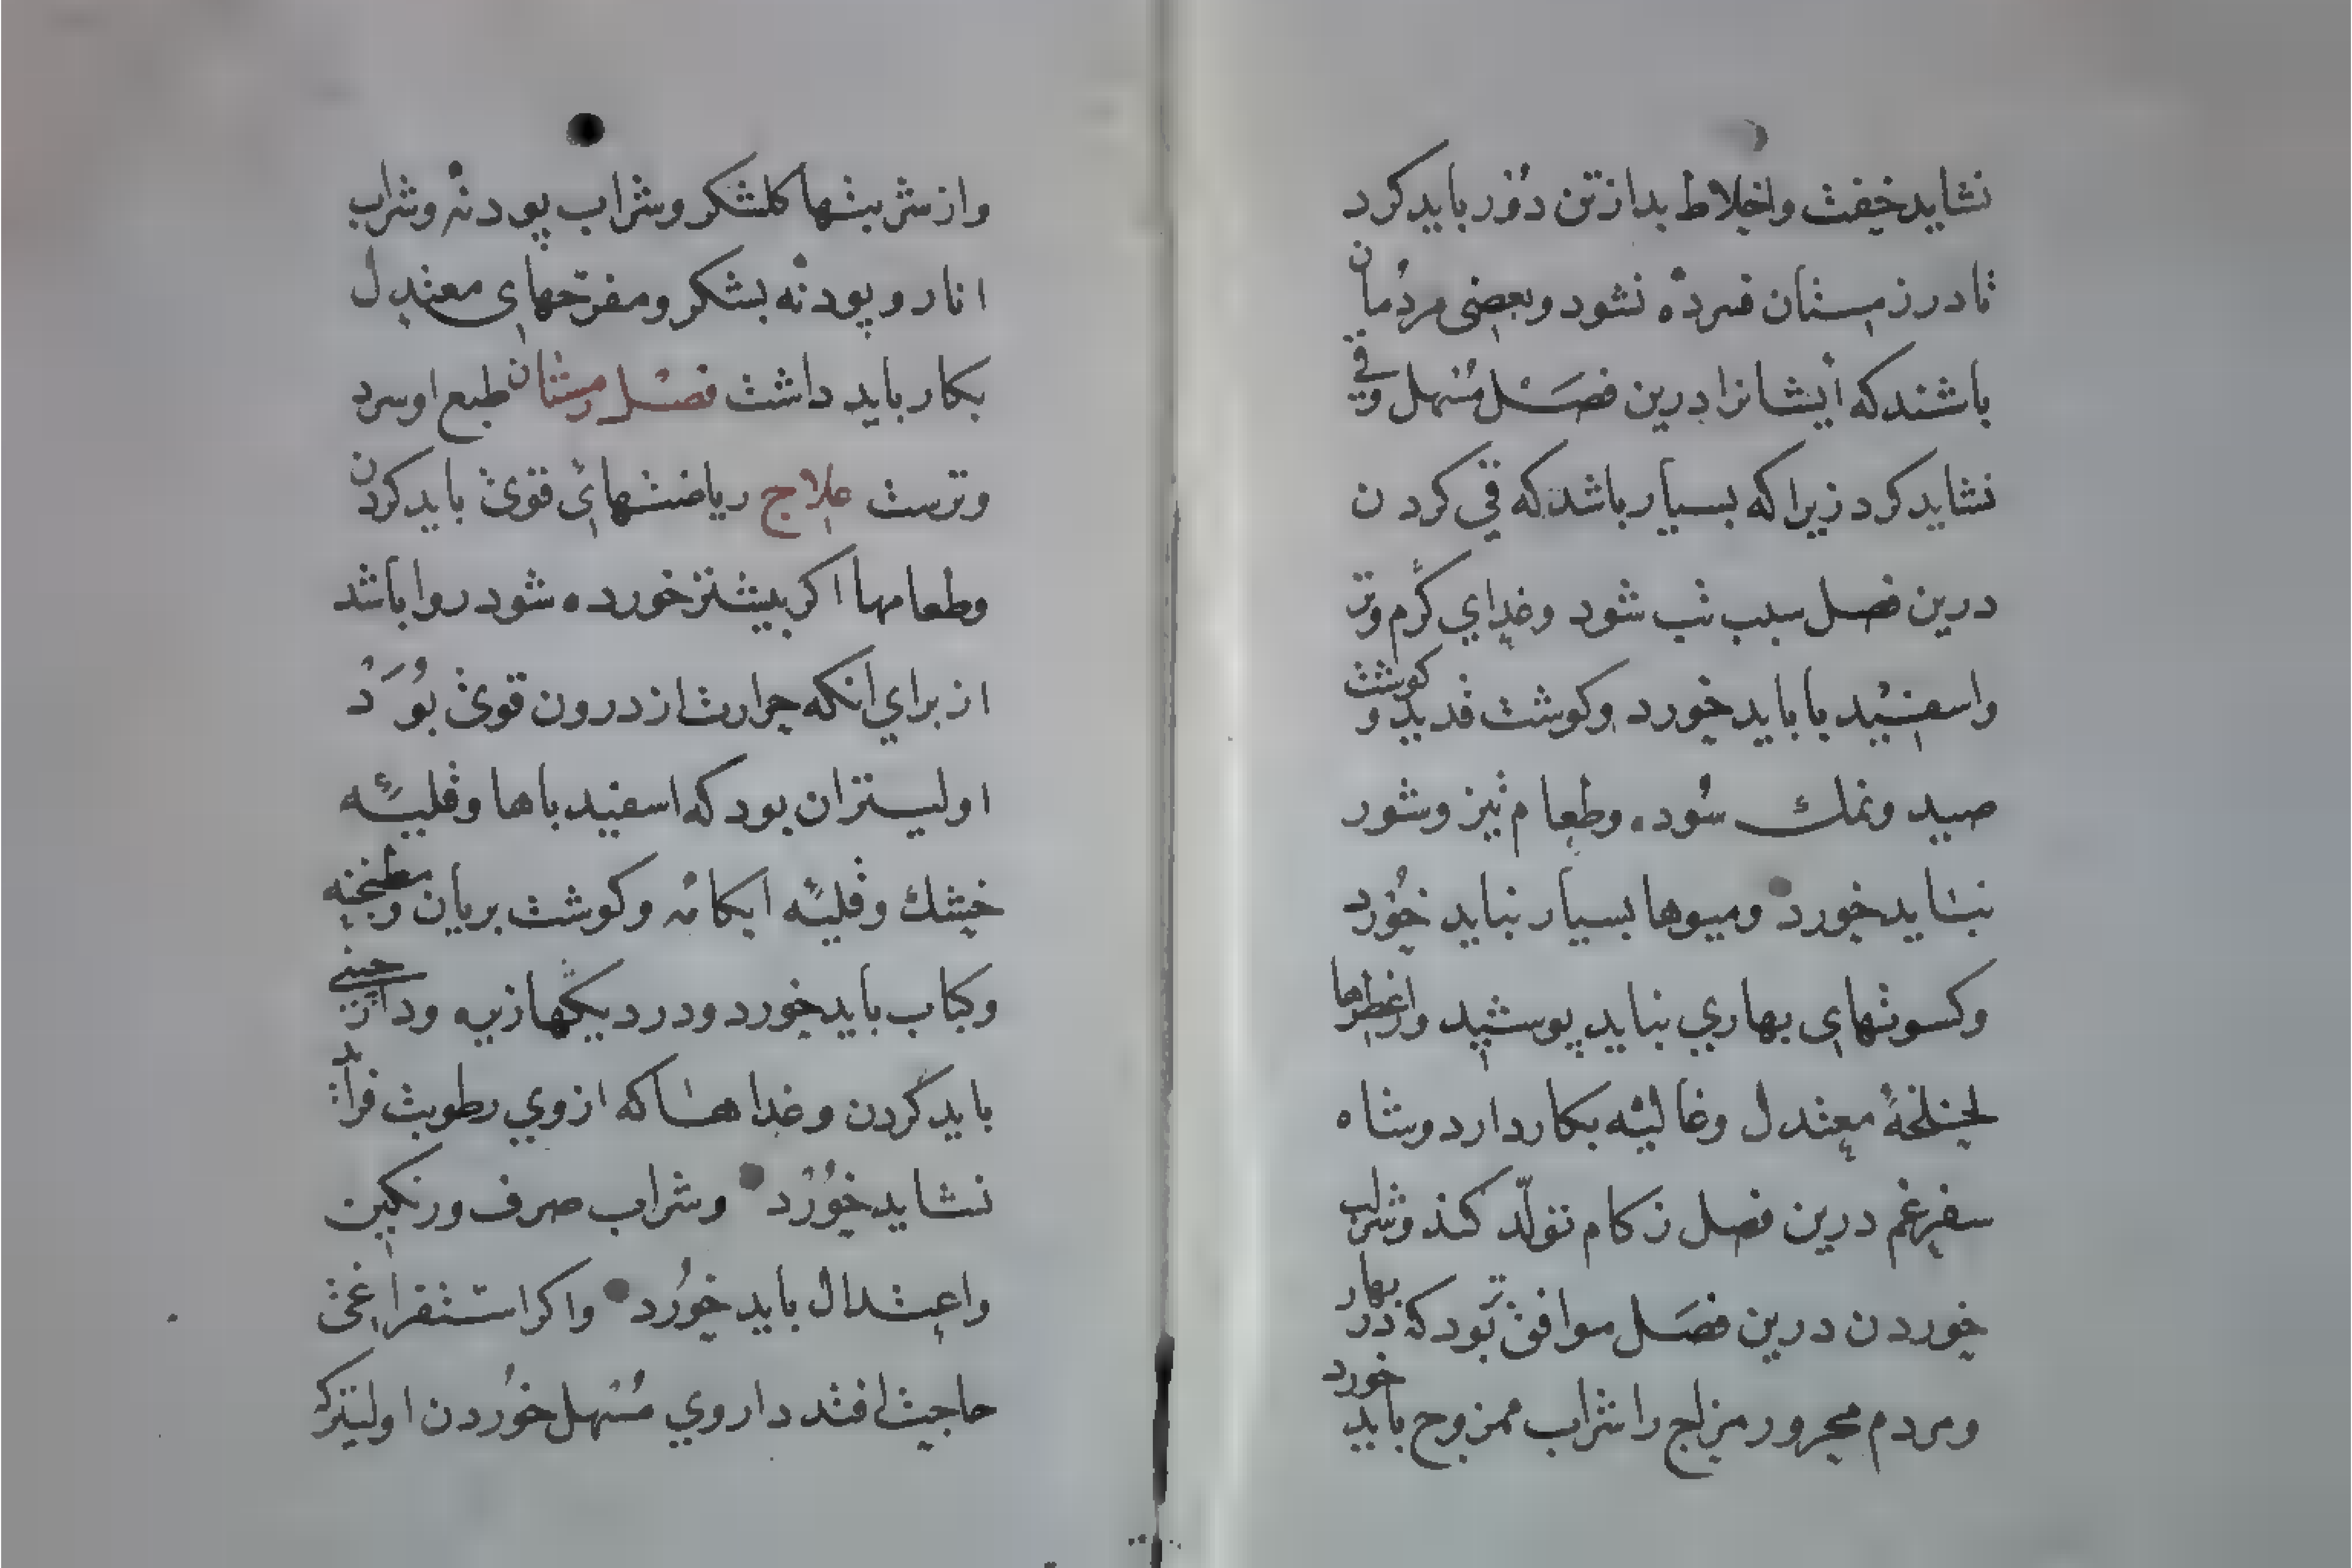 نشاید خفت واخلاط بد از تن دور باید کرد
تا در زمستان فسرده نشود وبعضی مردمان
باشند که ایشانرا درین فصل مسهل وقی
نشاید کرد زیرا که بسیار باشد که قی کردن
درین فصل سبب تب شود وغدای گرم وتر
واسفیدبا باید خورد وکوشت قدید و کوشت
صید ونمك سود. وطعام تیز وشور
نباید خورد ومیوها بسیار نباید خورد
وکسوتهای بهاری بباید پوسید وازعطرها
لخلخهٔ معتدل وغالیه بکار دارد وشاه
سفرغم درین فصل زکام تولّد کند وشراب
خوردن درین فصل موافق تر بود که در بهار
ومردم محرور مزاج را شراب ممزوج باید خورد
واز شربتها کلشکر وشراب پودنه وشراب
انار و پودنه بشکر ومفرّحهای معتدل
بکار باید داشت فصل زمستان طبع او سرد
وترست علاج ریاضتهای قوی باید کردن
وطعامها اکر بیشتر خورده شود روا باشد
از برای انکه حرارت از درون قوی بُوَدْ
اولیتر ان بود که اسفیدباها وقلیهٔ
خشك وقلیهٔ ابکامه وکوشت بریان ومطنجنه
وکباب باید خورد ودر دیکها زیره ودارچینی
باید کردن وغدا هـا که ازوی رطوبت فزاید
نشاید خورد وشراب صرف ورنکین
واعتدال باید خورد واکر استفراغی
حاجت افتد داروی مسهل خوردن اولیترکه